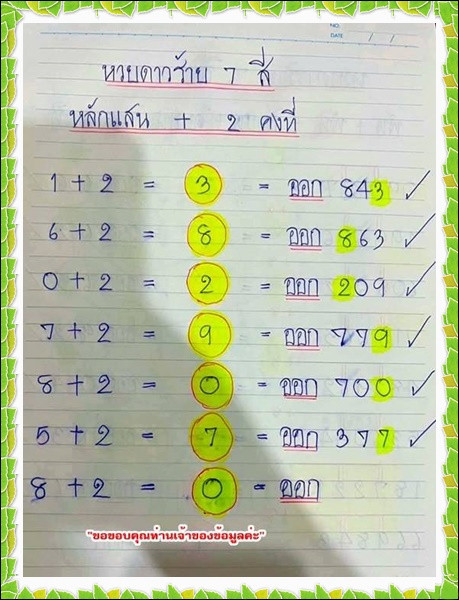 NO.
DATE / /
หวยดาวร้าย 7 สี
หลักแสน + 2 คงที่
1 + 2 = 3 = ออก 843 ✓
6 + 2 = 8 = ออก 863 ✓
0 + 2 = 2 = ออก 209 ✓
7 + 2 = 9 = ออก 779 ✓
8 + 2 = 0 = ออก 700 ✓
5 + 2 = 7 = ออก 377 ✓
8 + 2 = 0 = ออก
"ขอขอบคุณท่านเจ้าของข้อมูลค่ะ"